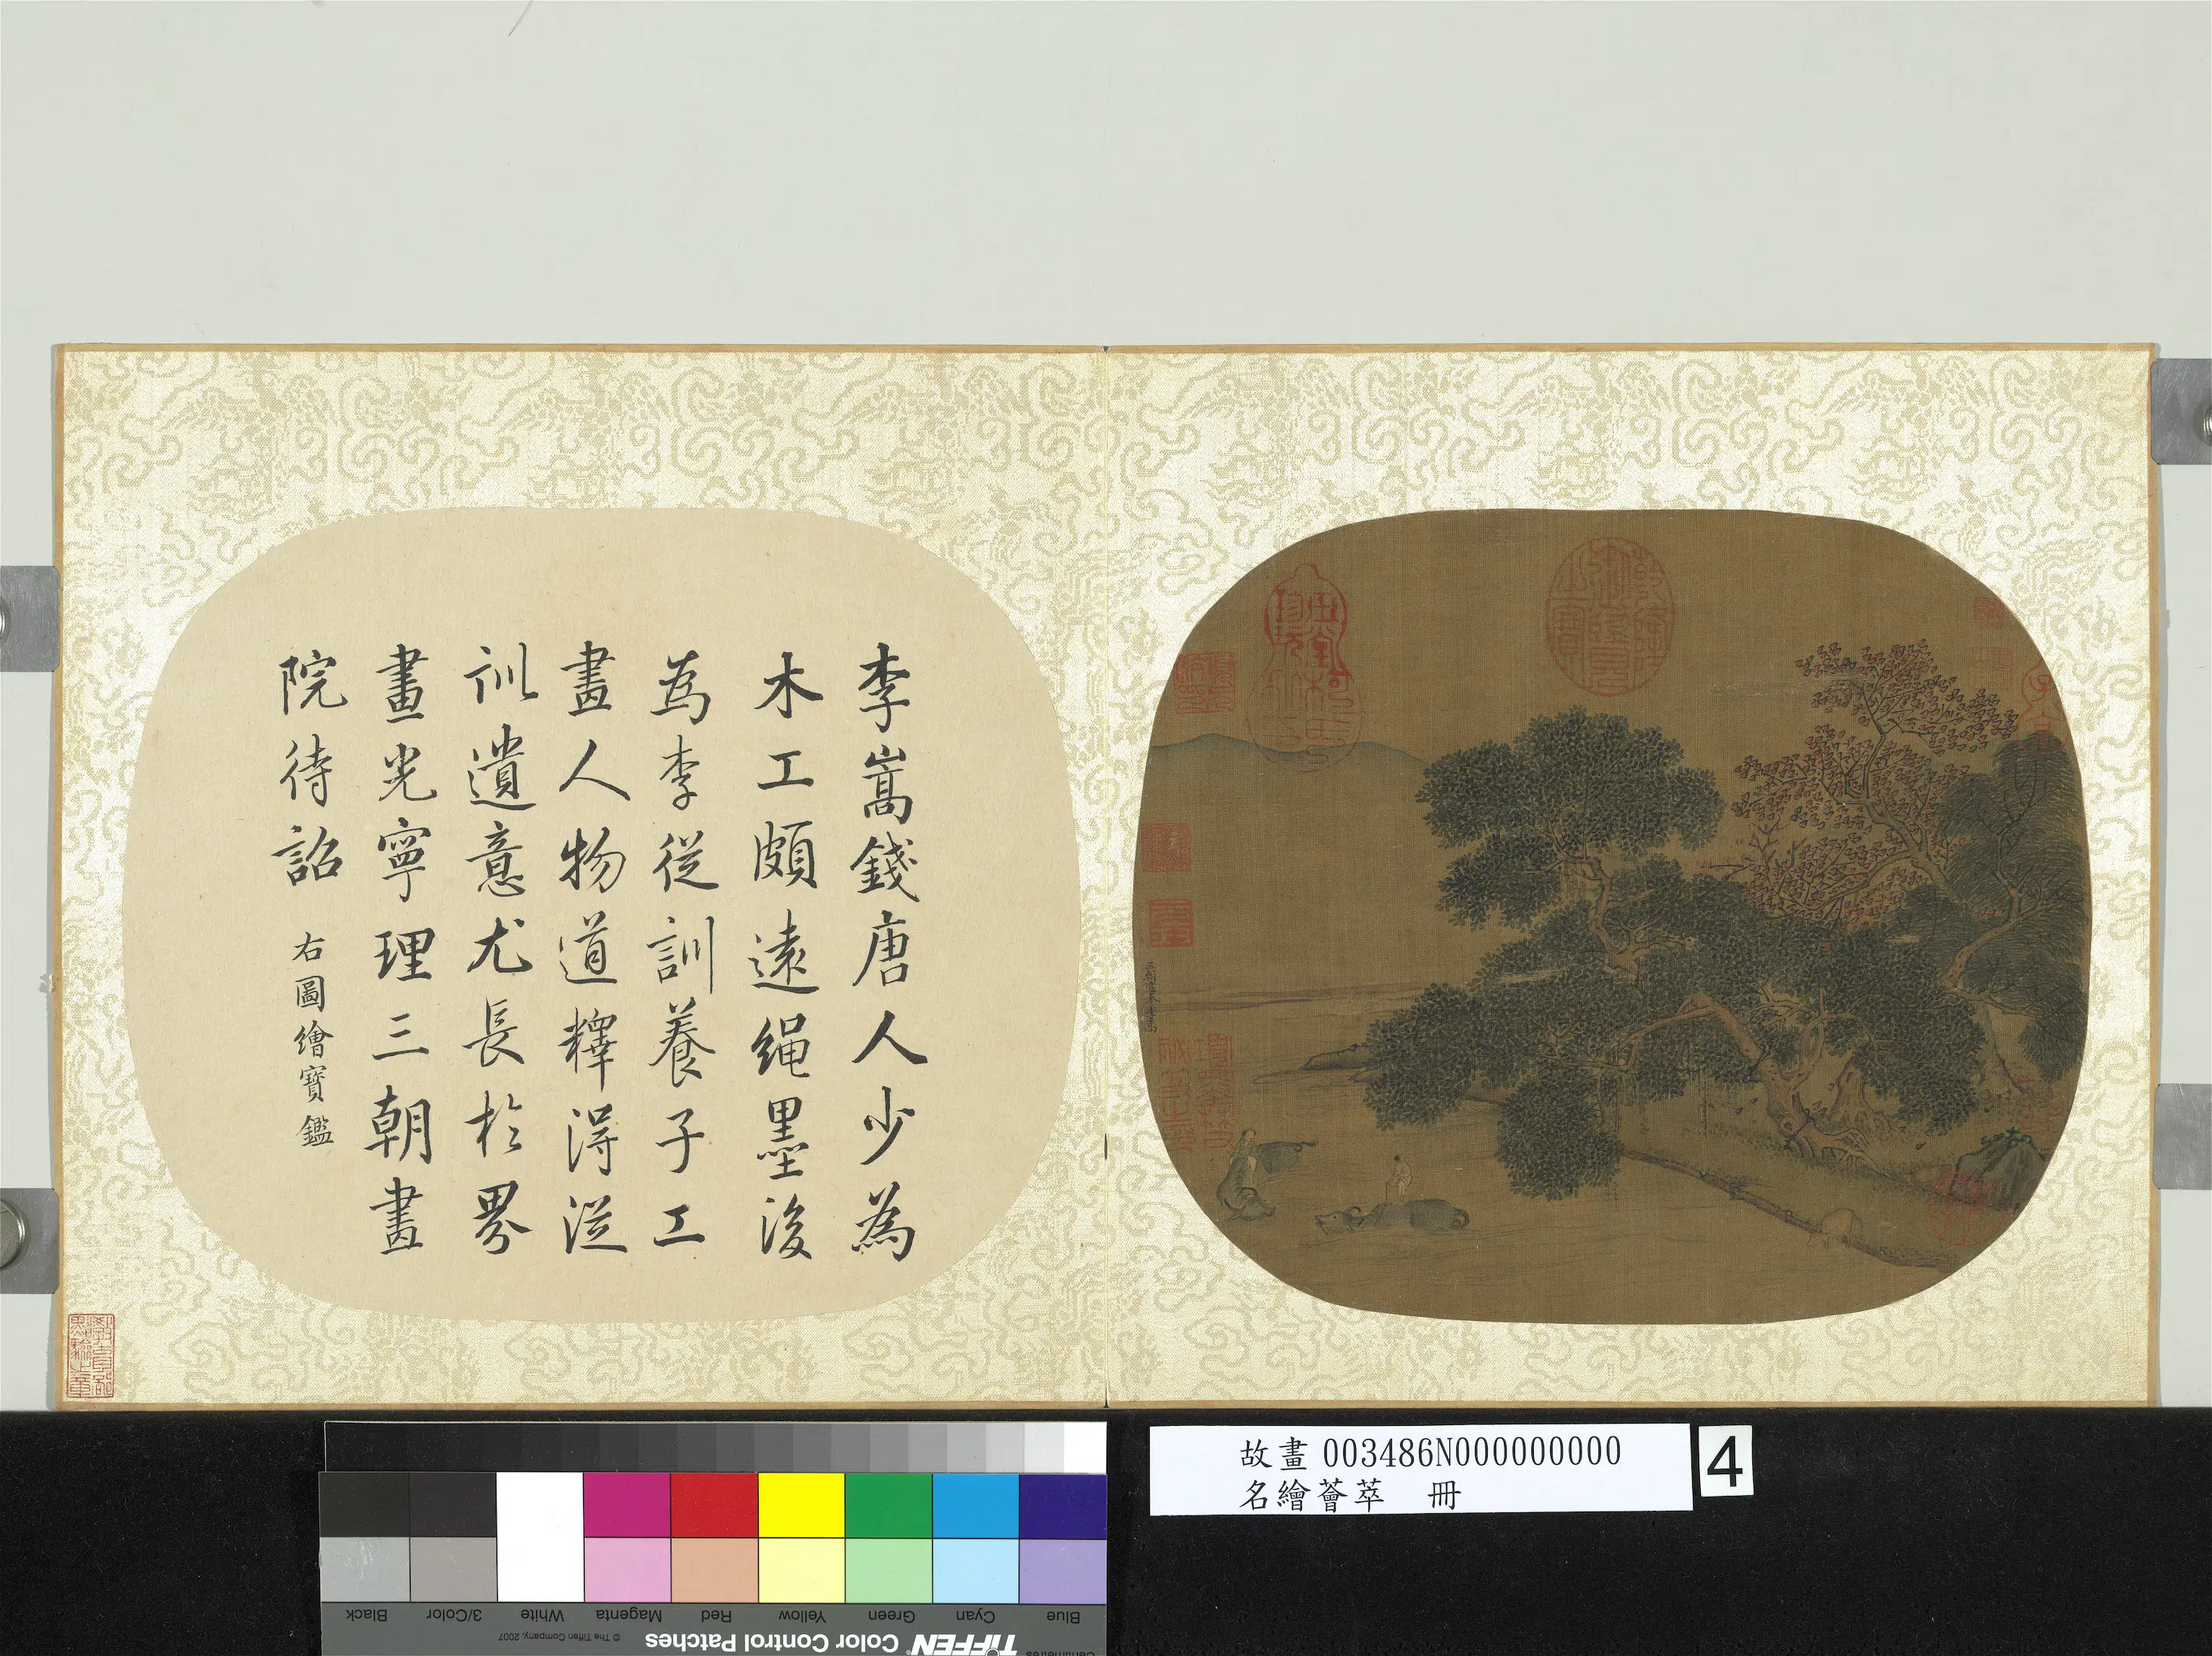 李嵩錢唐人少為
木工頗遠繩墨後
為李從訓養子工
畫人物道釋得從
訓遺意尤長於界
畫光寧理三朝畫
院待詔 右圖繪寶鑑
故畫 003486N000000000
名繪薈萃 冊
4
Blue
Cyan
Green
Yellow
Red
Magenta
White
3/Color
Black
TIFFEN Color Control Patches
© The Tiffen Company, 2007
Centimetres